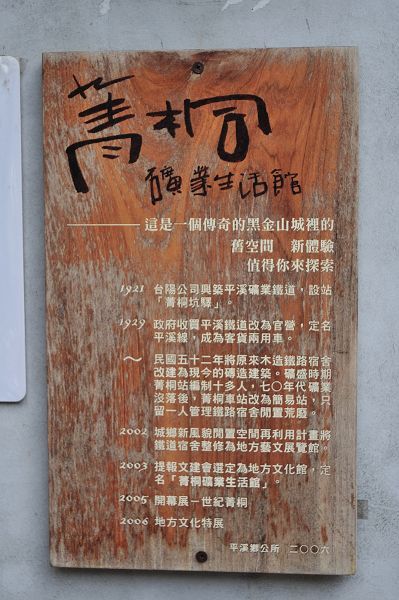 菁桐
礦業生活館
這是一個傳奇的黑金山城裡的
舊空間 新體驗
值得你來探索
1921 台陽公司興築平溪礦業鐵道，設站
「菁桐坑驛」。
1929 政府收買平溪鐵道改為官營，定名
平溪線，成為客貨兩用車。
～ 民國五十二年將原來木造鐵路宿舍
改建為現今的磚造建築。礦盛時期
菁桐站編制十多人，七○年代礦業
沒落後，菁桐車站改為簡易站，只
留一人管理鐵路宿舍閒置荒廢。
2002 城鄉新風貌閒置空間再利用計畫將
鐵道宿舍整修為地方藝文展覽館。
2003 提報文建會選定為地方文化館，定
名「菁桐礦業生活館」。
2005 開幕展－世紀菁桐
2006 地方文化特展
平溪鄉公所 二○○六